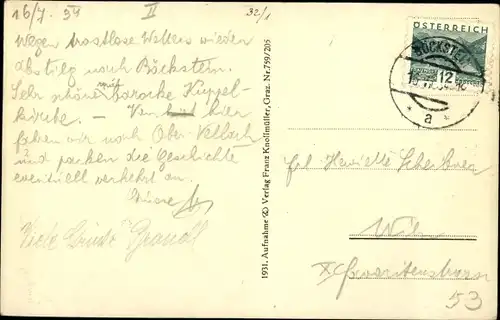 16/7. 34 II 32/1
Wegen trostlose Wetters wieder
abstieg nach Böckstein.
Sehr schöne Barocke Kuppel-
kirche. – Von hier
fahren wir nach Ober-Vellach
und packen die Geschichte
eventuell verkehrt an.
Viele Grüße
1931. Aufnahme Verlag Franz Knollmüller, Graz. Nr. 759/205
ÖSTERREICH
12
BÖCKSTEIN
a
Henriette
Wien
X
53